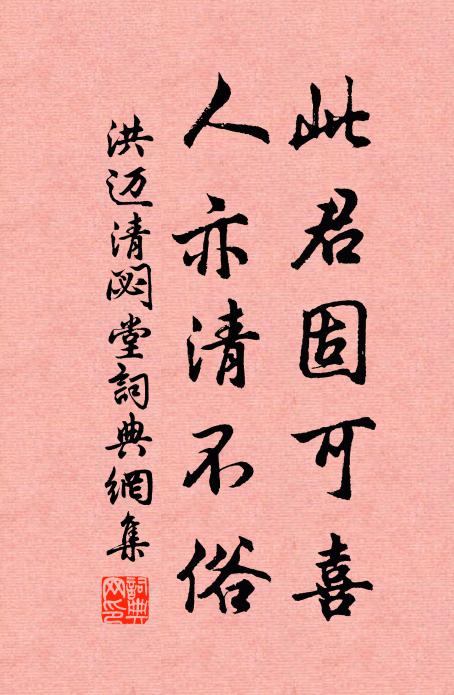 此君固可喜
人亦清不俗
洪迈清閟堂詞典網集
詞典
网印